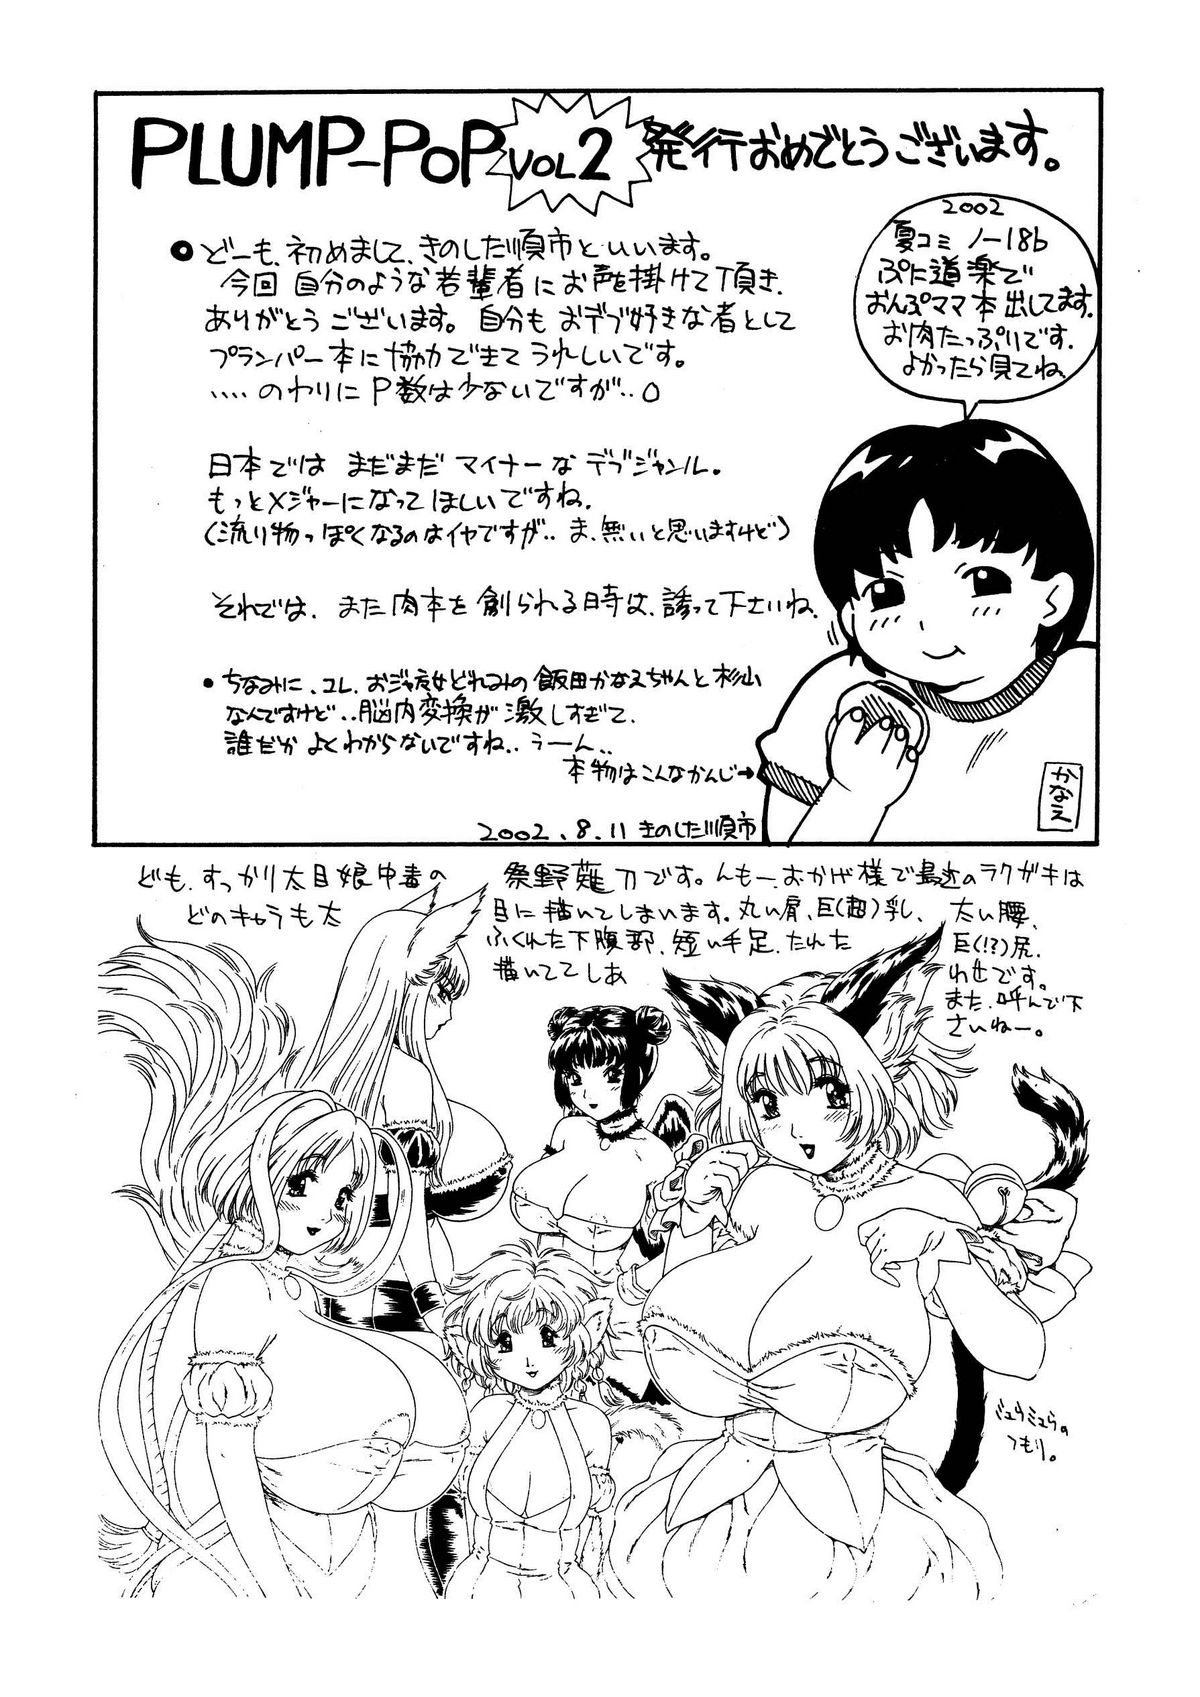 PLUMP-POP VOL2 発行おめでとうございます。
2002
夏コミ ノー18b
ぷに道楽で
おんぷママ本出してます。
お肉たっぷりです。
よかったら見てね。
●どーも、初めまして、きのした順市といいます。
今回 自分のような若輩者にお声を掛けて頂き、
ありがとうございます。自分も おデブ好きな者として
プランパー本に協力できて うれしいです。
‥‥のわりに P数は少ないですが‥。
日本では まだまだ マイナーな デブジャンル。
もっとメジャーになって ほしいですね。
(流行り物っぽくなるのはイヤですが‥ま、無いと思いますけど)
それでは、また肉本を創られる時は、誘って下さいね。
●ちなみに、コレ、おジャ魔女どれみの飯田かなえちゃんと杉山
なんですけど‥脳内変換が激しすぎて、
誰だか よくわからないですね‥うーん‥
本物はこんなかんじ→
かなえ
2002.8.11 きのした順市
ども、すっかり太目娘中毒の
野薙刀です。んもー、おかげ様で最近のラクガキは
どのキャラも太
目に描いてしまいます。丸い肩、巨(超)乳、
太い腰、
ふくれた下腹部、短い手足、たれた
巨(!?)尻、
描いててしあ
わせです。
また、呼んで下
さいねー。
ミュウミュウの
つもり。